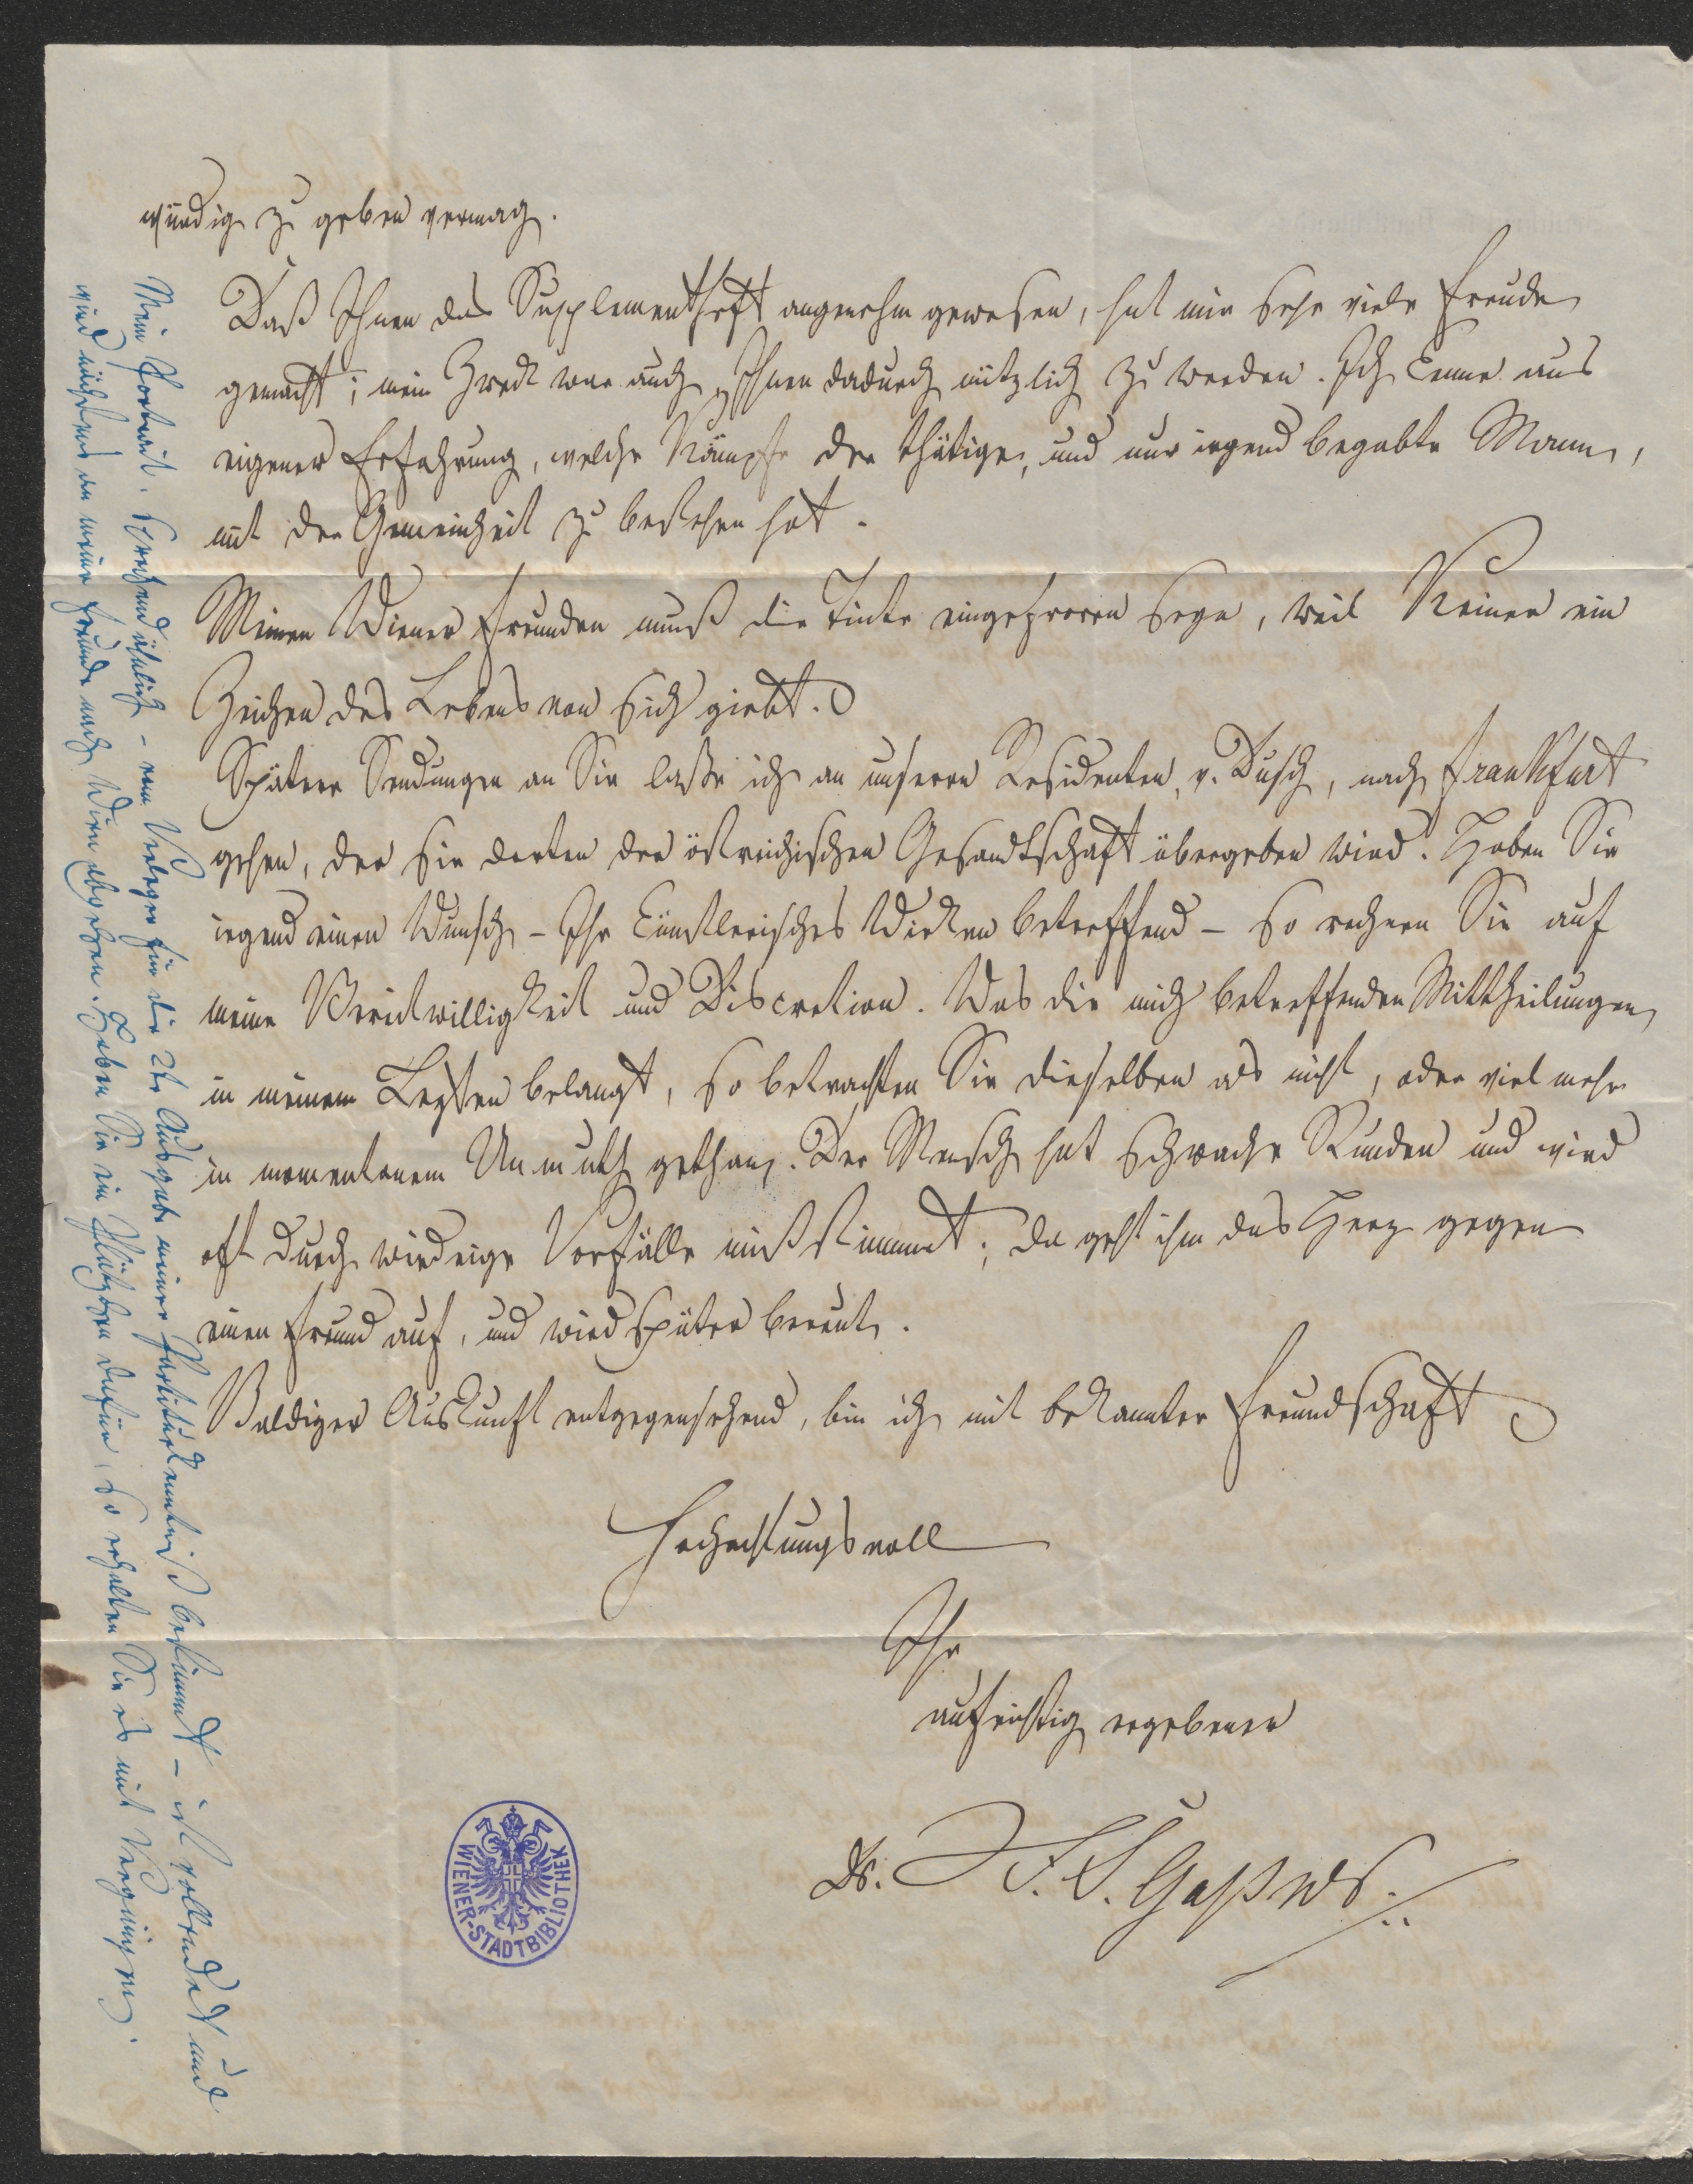 würdig zu geben vermag.
Daß Ihnen das Supplementheft angenehm gewesen, hat mir sehr viele Freude
gemacht; mein Zweck war auch, Ihnen dadurch nützlich zu werden. Ich kenne aus
eigener Erfahrung, welche Kämpfe der thätige, und nur irgend begabte Mann,
mit der Gemeinheit zu bestehen hat.
Meinen Wiener Freunden muß die Tinte eingefroren seyn, weil Keiner ein
Zeichen des Lebens von sich giebt.
Spätere Sendungen an Sie lasse ich an unseren Residenten, v. Dusch, nach Frankfurt
gehen, der sie dorten der östreichischen Gesandtschaft übergeben wird. Haben Sie
irgend einen Wunsch – Ihr künstlerisches Wirken betreffend – so rechnen Sie auf
meine Bereitwilligkeit und Discretion. Was die mich betreffenden Mittheilungen
in meinem Letzten belangt, so betrachten Sie dieselben als nicht, oder viel mehr
in momentanem Unmuth gethan. Der Mensch hat schwache Stunden und wird
oft durch widrige Vorfälle mißstimmt; da geht ihm das Herz gegen
einen Freund auf, und wird später bereut.
Baldiger Auskunft entgegensehend, bin ich mit bekannter Freundschaft
Hochachtungsvoll
Ihr
aufrichtig ergebener
Dr. F. S. Gaßner.
Mein Portrait, sprechend ähnlich – vom Verleger für die 2te Ausgabe meiner Partiturkenntniß bestimmt – ist vollendet und
wird nächstens an meine Freunde nach Wien abgehen. Haben Sie ein Plätzchen dafür, so erhalten Sie es mit Vergnügen.
WIENER-STADTBIBLIOTHEK